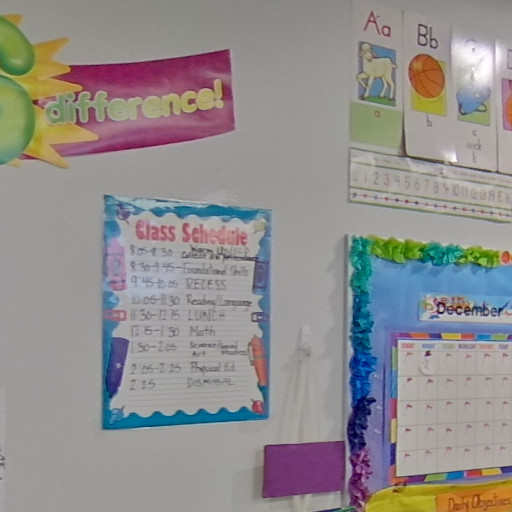 difference!
Aa
a
Bb
b
c
1 2 3 4 5 6 7 8 9 10 11
Class Schedule
8:05-8:30
8:30-9:45-Foundational Skills
9:45-10:05 RECESS
10:05-11:30 Reading/Language
11:30-12:15 LUNCH
12:15-1:30 Math
1:30-2:05 Science/Social
Art Studies
2:05-2:25 Physical Ed
2:25 Dismissal
December
Daily Objectives